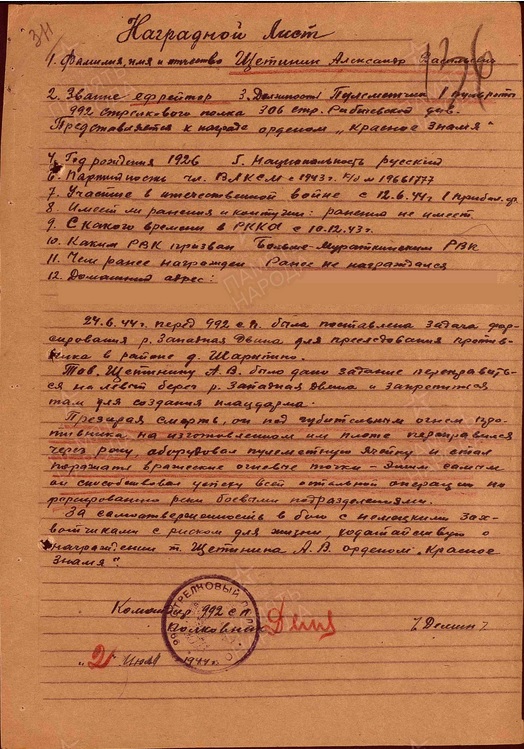 Наградной Лист
1. Фамилия, имя и отчество Щетинин Александр Васильевич
2. Звание ефрейтор 3. Должность Пулеметчик 1 пульроты
992 стрелкового полка 306 стр. Рибшевской див.
Представляется к награде орденом „Красное Знамя"
4. Год рождения 1926 5. Национальность русский
6. Партийность чл. ВЛКСМ с 1943г. № 19661777
7. Участие в отечественной войне с 12.6.44г 1 прибал. фр.
8. Имеет ли ранения и контузии: ранений не имеет
9. С какого времени в РККА с 10.12.43г.
10. Каким РВК призван Больше-Мурашкинским РВК
11. Чем ранее награжден Ранее не награждался
12. Домашний адрес:
24.6.44г. перед 992 с.п. была поставлена задача фор-
сирования р. Западная Двина для преследования против-
ника в районе д.
Тов. Щетинину А.В. было дано задание переправить-
ся на левый берег р. Западная Двина и закрепиться
там для создания плацдарма.
Презирая смерть, он под губительным огнем про-
тивника на изготовленном им плоте переправился
через реку, оборудовал пулеметную ячейку и стал
поражать вражеские огневые точки – Этим самым
он способствовал успеху всей остальной операции по
форсированию реки боевыми подразделениями.
За самоотверженность в бою с немецкими зах-
ватчиками с риском для жизни, ходатайствую о
награждении т. Щетинина А.В. орденом „Красное
Знамя"
Командир 992 с.п.
Полковник
/Демин/
„2" Июля 1944г.